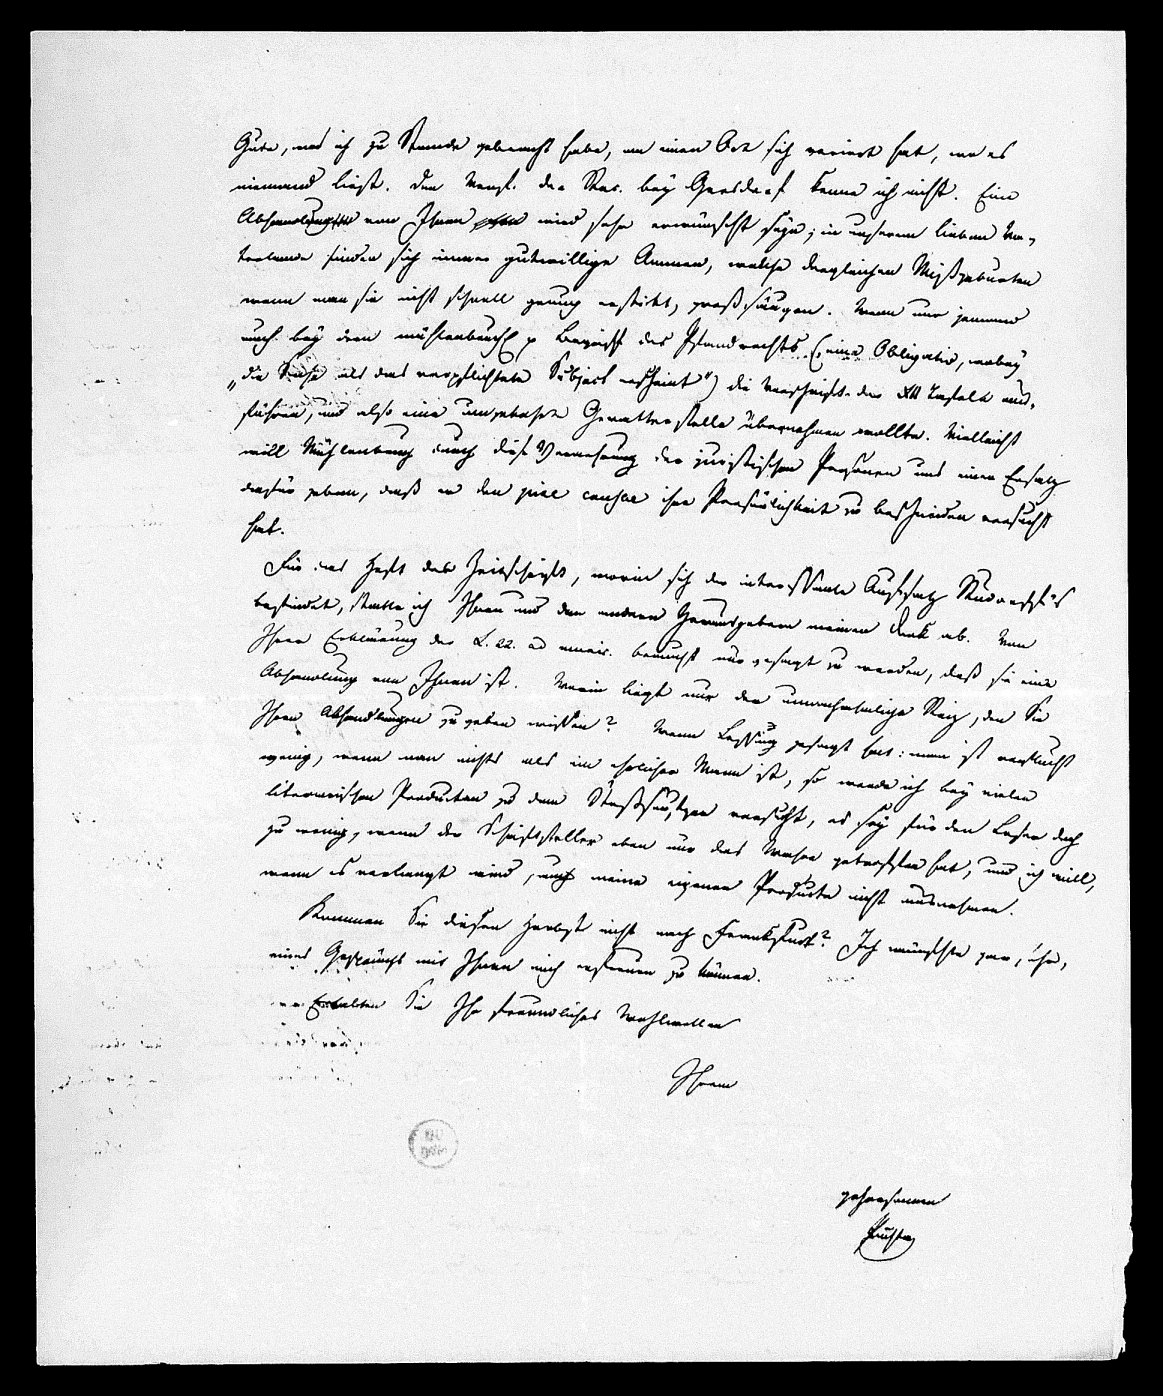 Gute, was ich zu Stande gebracht habe, an einen Ort sich verirrt hat, wo es
niemand liest. Den Verf. der Rec. bey Gersdorf kenne ich nicht. Eine
Abhandlung von Ihnen wird sehr erwünscht seyn; in unserem lieben Va-
terlande finden sich immer gutwillige Ammen, welche dergleichen Mißgeburten
wenn man sie nicht schnell genug erstickt, groß säugen. Wenn nur jemand
auch bey dem mühlenbruch Begriff des Pfandrechts (eine Obligatio, wobey
„die Sache als das verpflichtete Subject erscheint") die Vorschrift der XII Tafeln aus-
führen, und also eine umgekehrte Gevatterstelle übernehmen wollte. Vielleicht
will Mühlenbruch durch diese Vermehrung der juristischen Personen uns einen Ersatz
dafür geben, daß er den piae causae ihre Persönlichkeit zu beschneiden versucht
hat.
Für das Heft der Zeitschrift, worin sich der interessante Aufsatz Rudorff's
befindet, statte ich Ihnen und den anderen Herausgebern meinen Dank ab. Von
Ihrer Erklärung der L. 22. ad munic. braucht nur gesagt zu werden, daß sie eine
Abhandlung von Ihnen ist. Worin liegt nur der unnachahmliche Reiz, den Sie
Ihren Abhandlungen zu geben wissen? Wenn Lessing gesagt hat: man ist verflucht
wenig, wenn man nichts als ein ehrlicher Mann ist, so werde ich bey vielen
literarischen Producten zu dem Stoßseufzer versucht, es sey für den Leser doch
zu wenig, wenn der Schriftsteller eben nur das Wahre getroffen hat, und ich will,
wenn es verlangt wird, auch meine eigenen Producte nicht ausnehmen.
Kommen Sie diesen Herbst nicht nach Frankfurt? Ich wünschte gar sehr,
eines Gesprächs mit Ihnen mich erfreuen zu können.
Erhalten Sie Ihr freundliches Wohlwollen
Ihrem
gehorsamen
Puchta